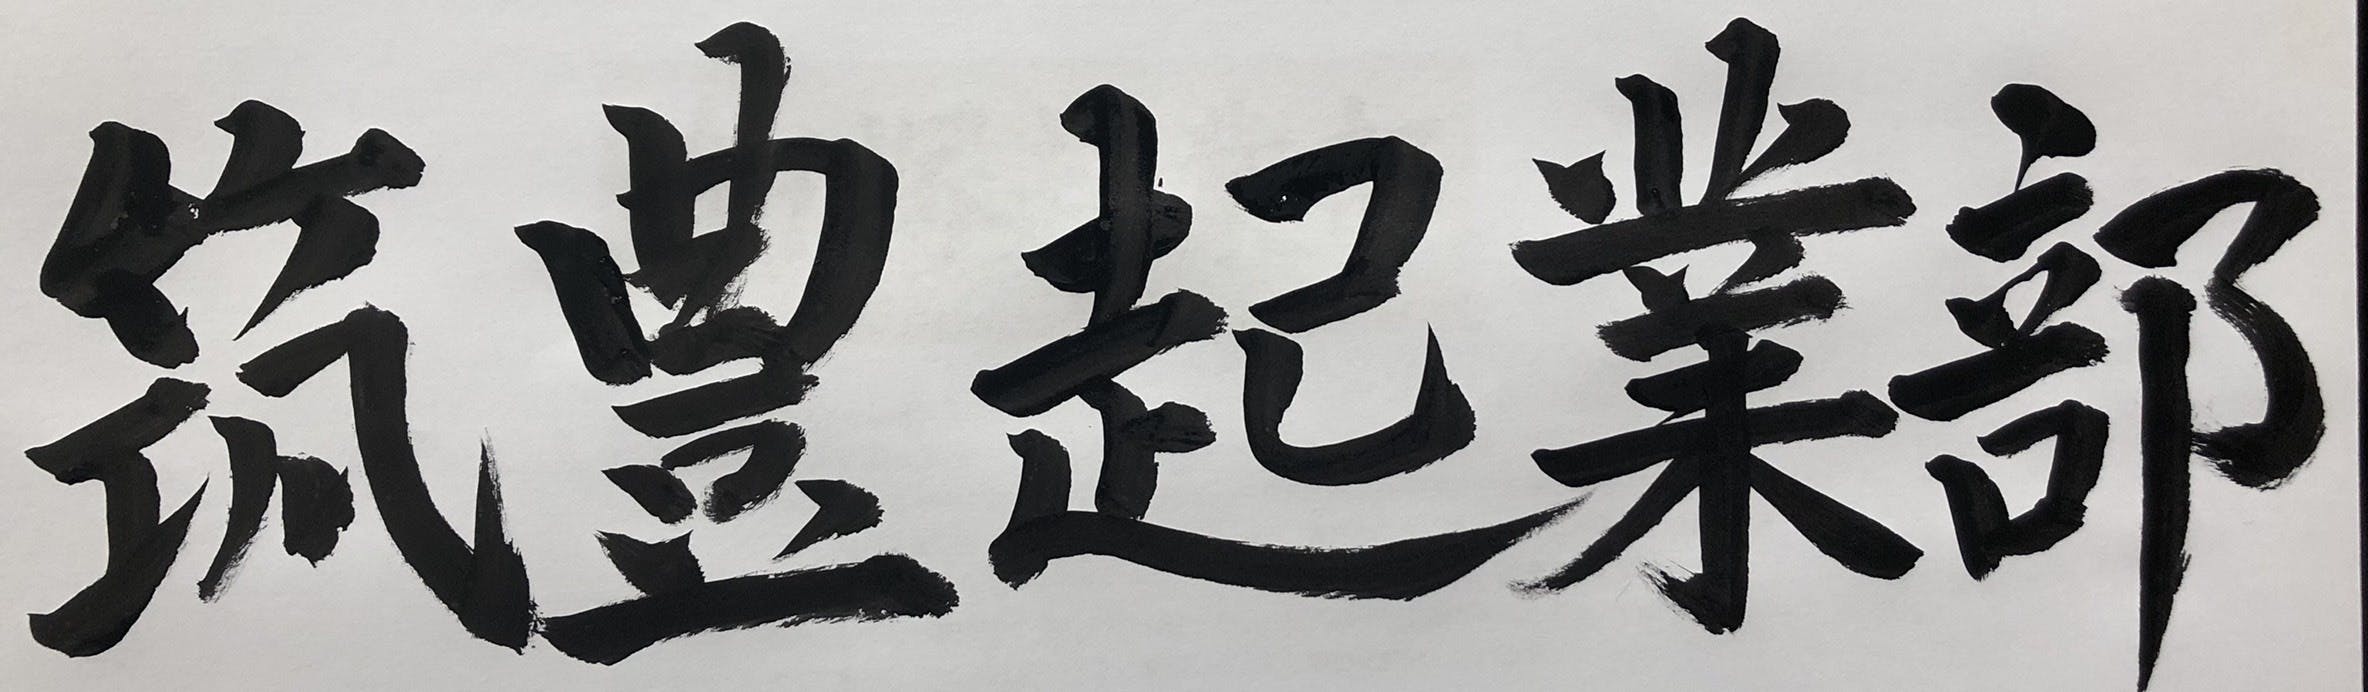 筑豊起業部